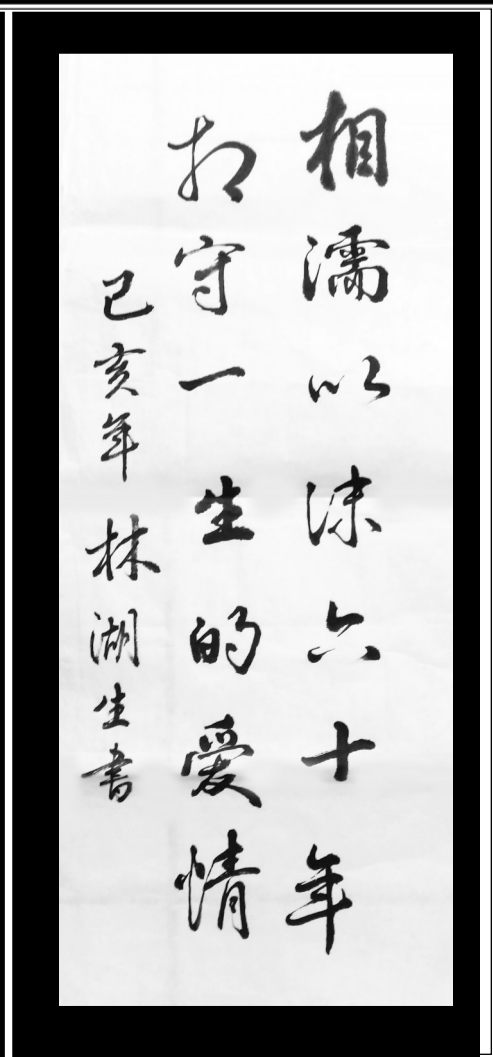 相濡以沫六十年
相守一生的爱情
己亥年林湖生书